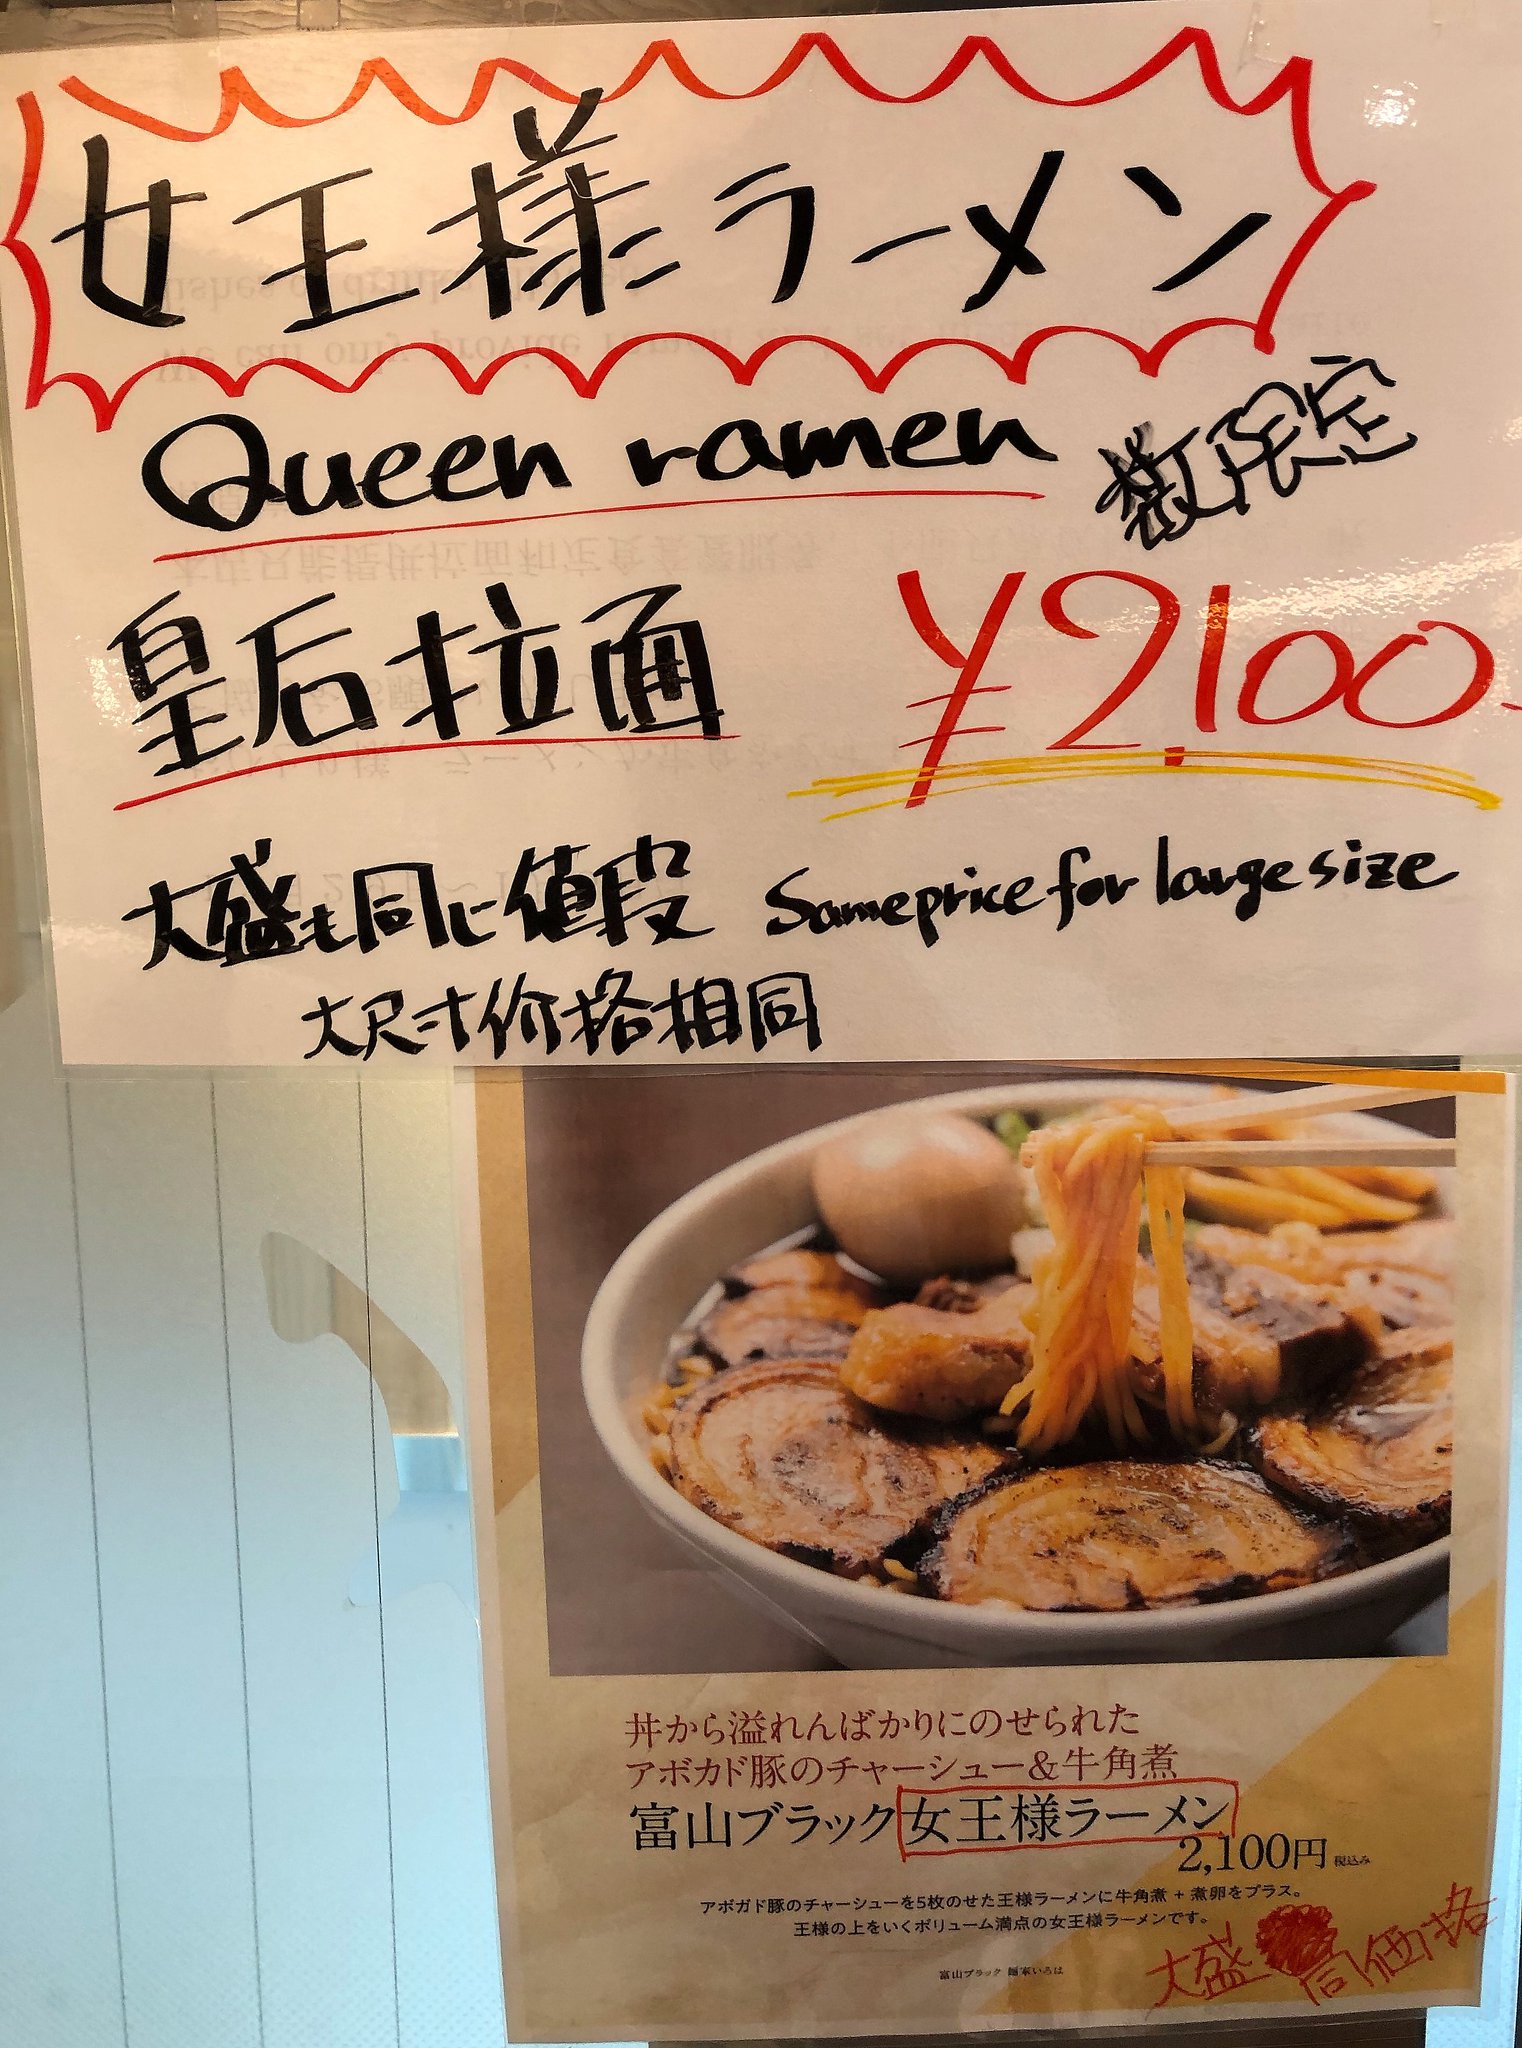 女王様ラーメン
Queen ramen
数限定
皇后拉面
¥2,100-
大盛も同じ値段
Same price for large size
大尺寸价格相同
丼から溢れんばかりにのせられた
アボカド豚のチャーシュー&牛角煮
富山ブラック女王様ラーメン
2,100円 税込み
アボガド豚のチャーシューを5枚のせた王様ラーメンに牛角煮 + 煮卵をプラス。
王様の上をいくボリューム満点の女王様ラーメンです。
大盛 同価格
富山ブラック 麺家いろは